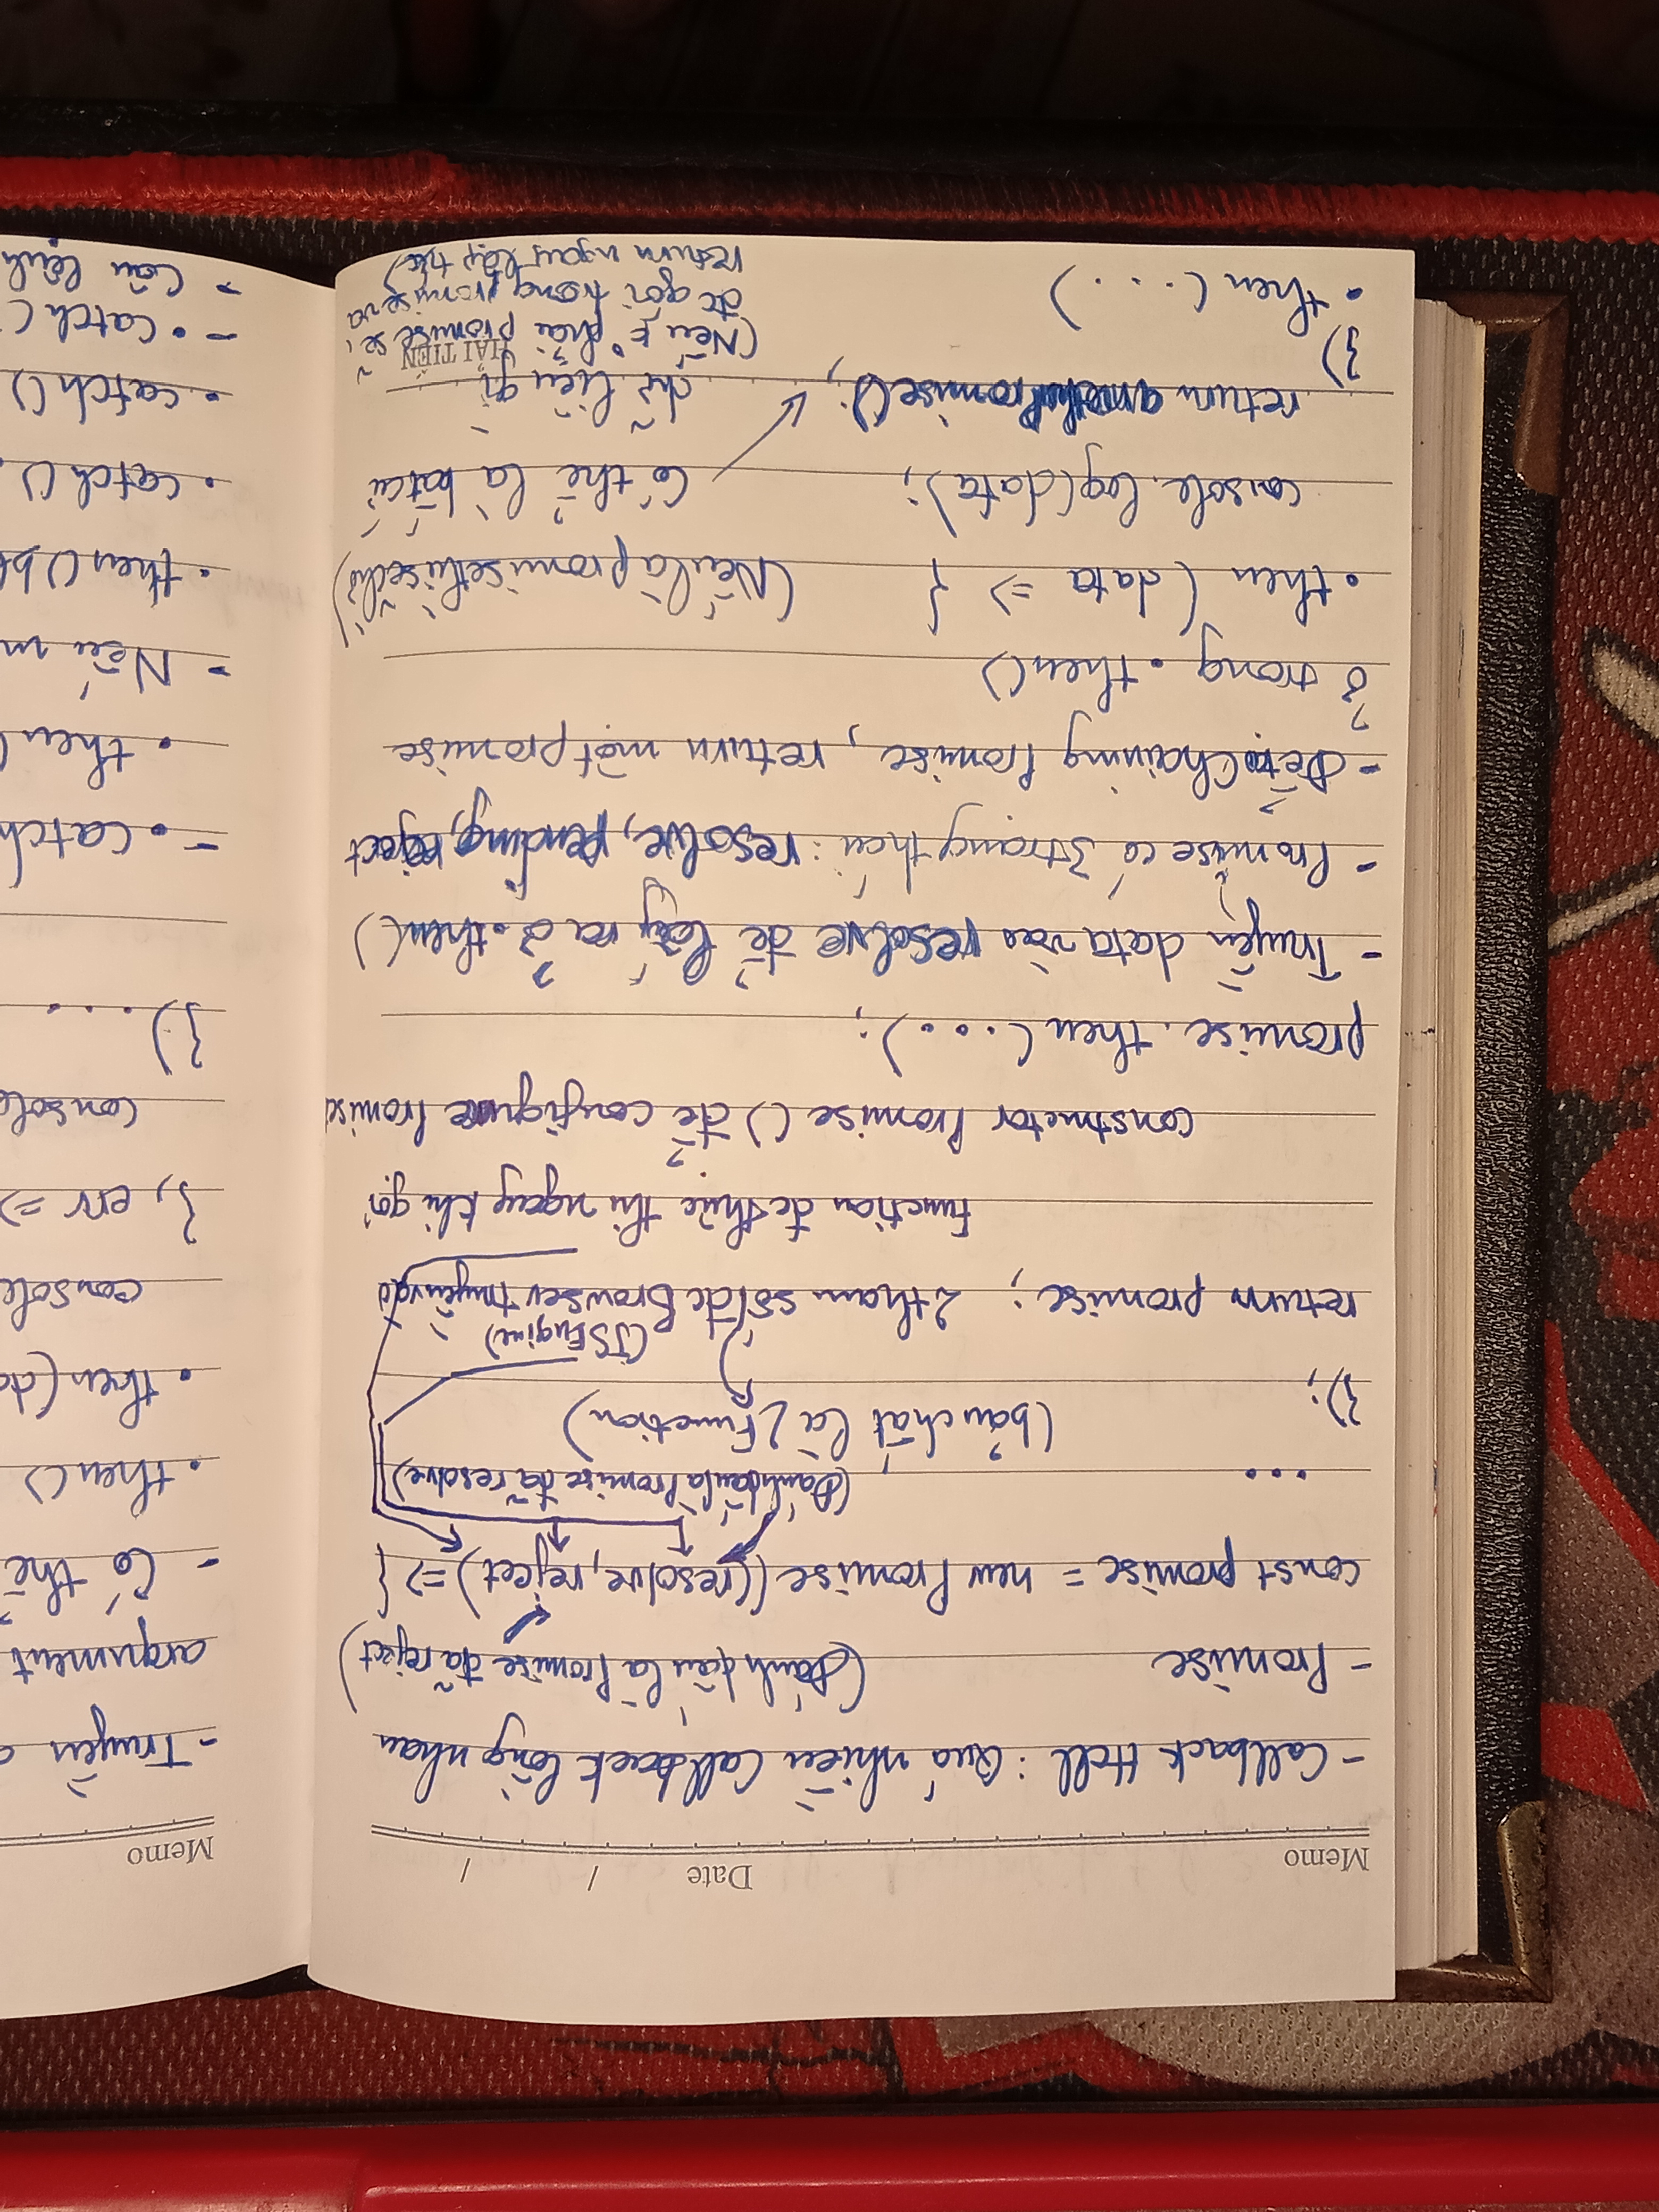 Memo Date / /
- Callback Hell : Quá nhiều Callback lồng nhau
- Promise (Đánh dấu là Promise đã reject)
const promise = new Promise ((resolve, reject) => {
... (Đánh dấu là Promise đã resolve)
(bản chất là 2 Function)
});
(JS Engine)
return promise; 2 tham số đc Browser truyền vào
Function đc thực thi ngay khi gọi
constructor Promise () để configure Promise
promise.then(...);
- Truyền data vào resolve để lấy ra ở .then()
- Promise có 3 trạng thái : resolve, pending, reject
- Để Chaining Promise, return một promise
ở trong .then()
.then (data => { (Nếu là promise thì sẽ chờ)
console.log(data); Có thể là bất cứ
return anotherPromise(); dữ liệu gì
HẢI TIẾN
}) (Nếu k° phải promise sẽ
đc gói trong promise và
.then(...)
return ngay lập tức)
Memo
- Truyền
argument
- Có thể
.then()
.then(
console
}, err =>
console
})...
- .catch
.then(
- Nếu
.then()
.catch()
.catch()
- .catch(
- Câu lệnh